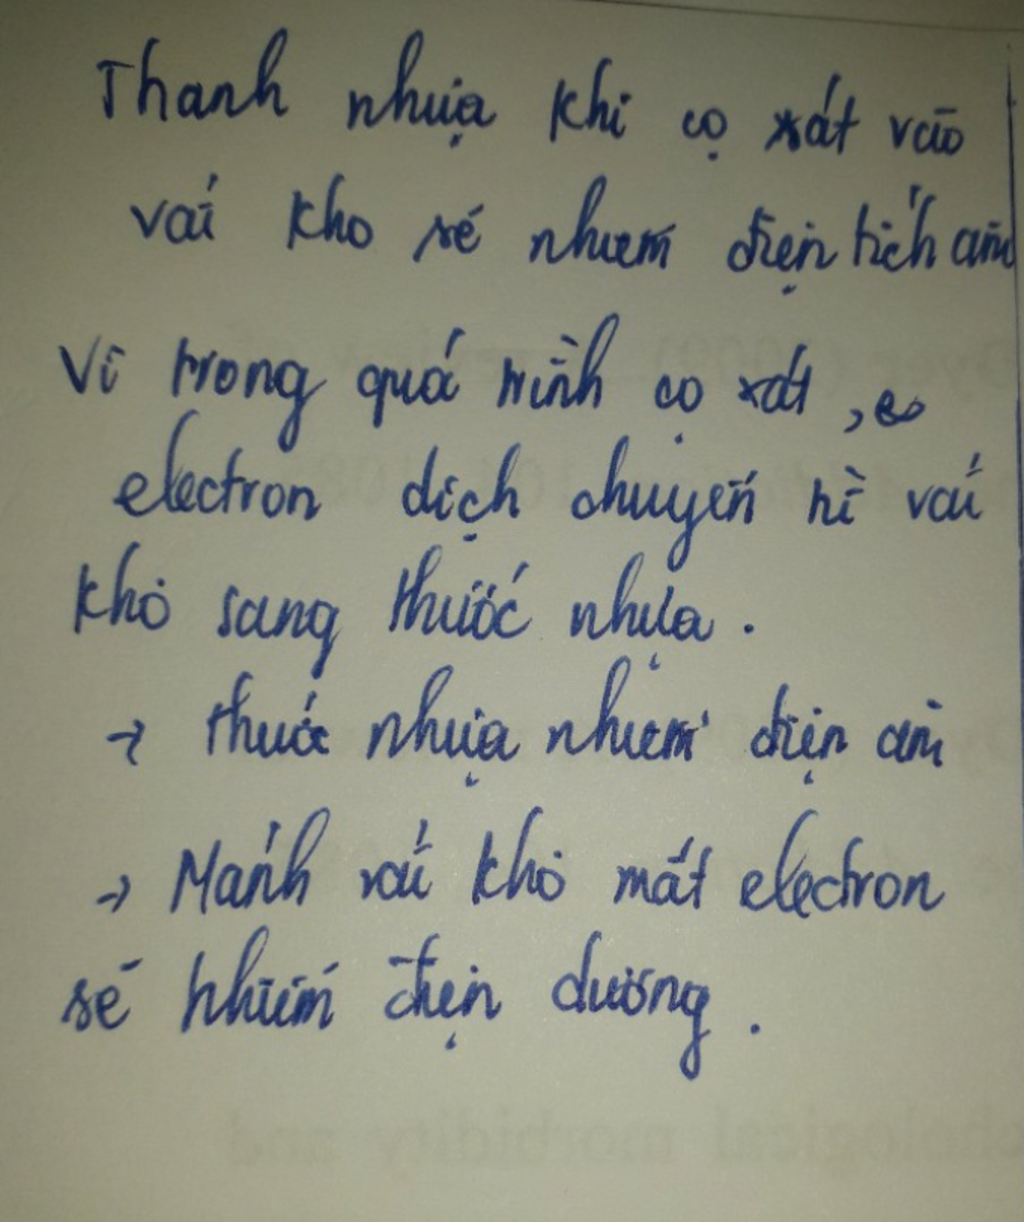 Thanh nhựa khi cọ xát vào
vải khô sẽ nhiễm điện tích âm
Vì trong quá trình cọ xát,
electron dịch chuyển từ vải
khô sang thước nhựa.
→ thước nhựa nhiễm điện âm
→ Mảnh vải khô mất electron
sẽ nhiễm điện dương.